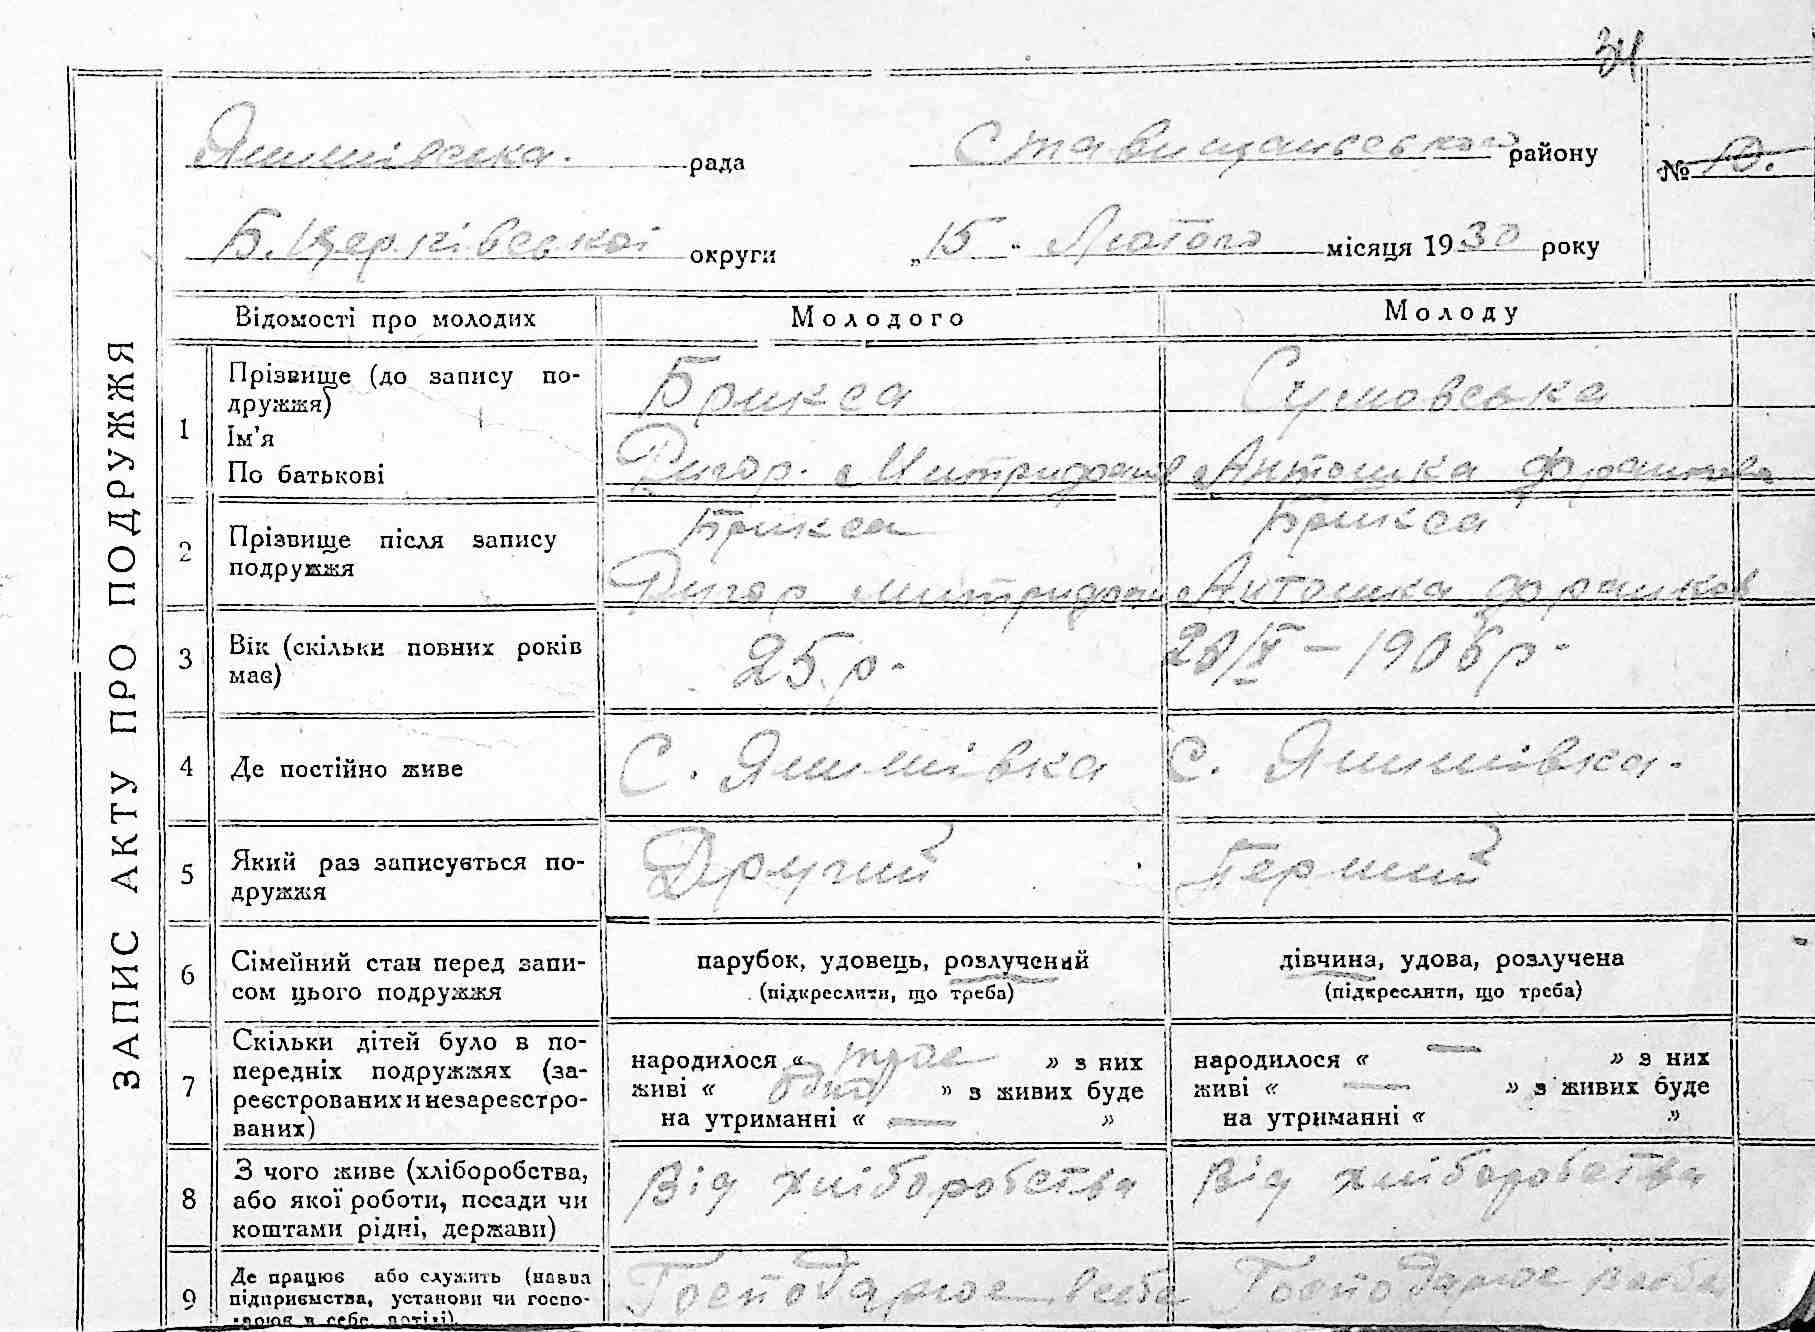 31
Яшшівська рада Ставищанського району № 10.
Б. Церківської округи „15" Лютого місяця 1930 року
ЗАПИС АКТУ ПРО ПОДРУЖЖЯ
Відомості про молодих Молодого Молоду
1 Прізвище (до запису по-
дружжя) Брикса Сумовська
Ім'я
По батькові Григор. Антошка
2 Прізвище після запису
подружжя Брикса Брикса
Григор Антошка
3 Вік (скільки повних років
має) 25 р. 28/X – 1906 р.
4 Де постійно живе С. Яшшівка С. Яшшівка.
5 Який раз записується по-
дружжя Другий Перший
6 Сімейний стан перед запи-
сом цього подружжя
парубок, удовець, розлучений
(підкреслити, що треба)
дівчина, удова, розлучена
(підкреслити, що треба)
7 Скільки дітей було в по-
передніх подружжях (за-
реєстрованих и незареєстро-
ваних)
народилося « троє » з них
живі « одно » з живих буде
на утриманні « — »
народилося « — » з них
живі « — » з живих буде
на утриманні « »
8 З чого живе (хліборобства,
або якої роботи, посади чи
коштами рідні, держави)
Від хліборобства Від хліборобства
9 Де працює або служить (назва
підприємства, установи чи госпо-
Господарює в себе Господарює в себе